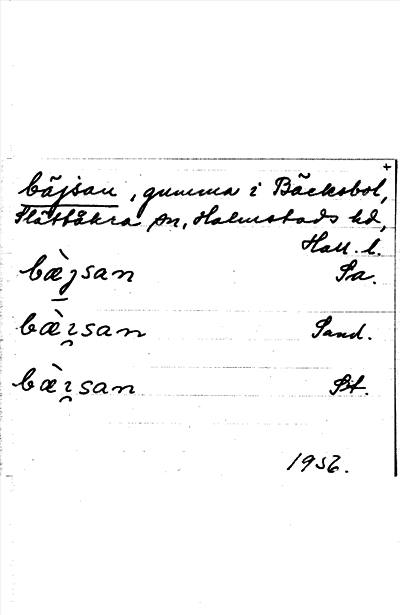 +
bäjsan, gumma i Bäcksbol,
Slättåkra sn, Halmstads hd,
Hall. l.
bæ̀jsan Sa.
bæ̀ɪ̯san Sand.
bæ̀ɪ̯san St.
1956.